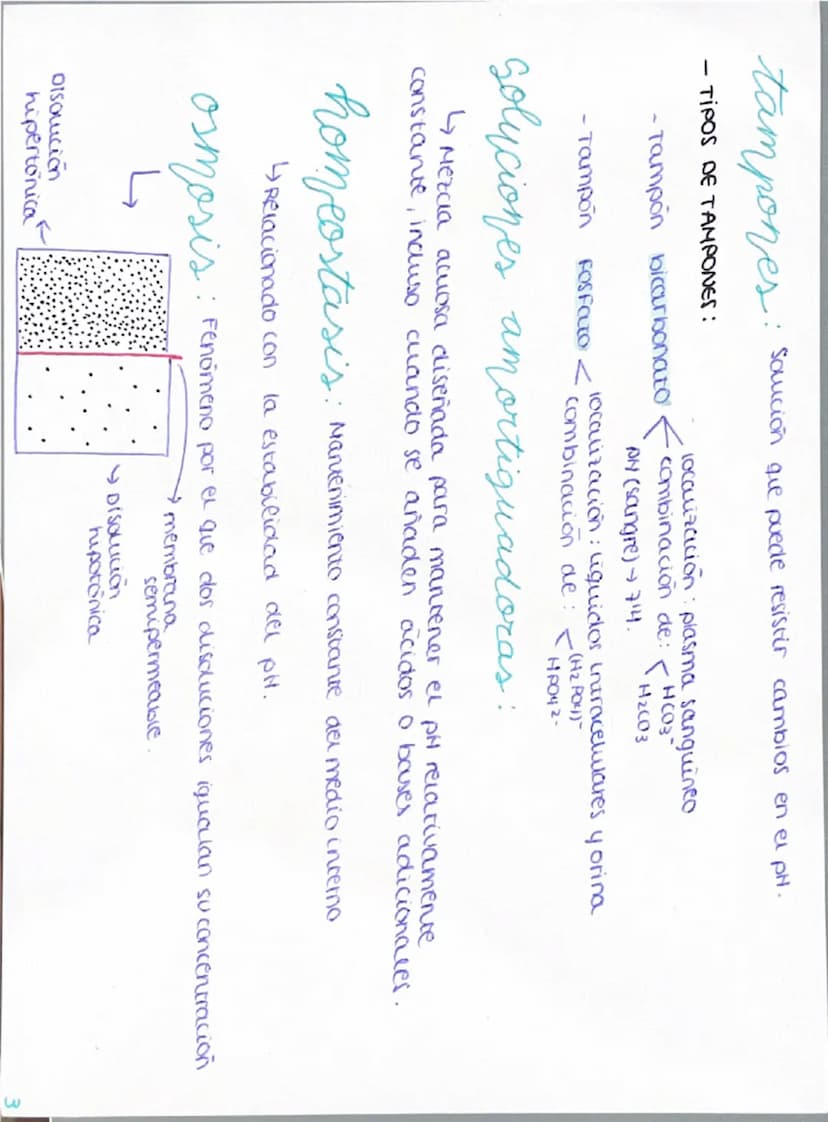 tampones: Solución que puede resistir cambios en el pH.
- TIPOS DE TAMPONES:
- Tampón bicarbonato < localización: plasma sanguíneo
combinación de: < HCO3-
H2CO3
pH (sangre) → 7'4.
- Tampón fosfato < localización: líquidos intracelulares y orina
combinación de: < (H2PO4)-
HPO42-
Soluciones amortiguadoras:
↳ Mezcla acuosa diseñada para mantener el pH relativamente
constante, incluso cuando se añaden ácidos o bases adicionales.
homeostasis: Mantenimiento constante del medio interno
↳ Relacionado con la estabilidad del pH.
osmosis: Fenómeno por el que dos disoluciones igualan su concentración
→ membrana
semipermeable.
→ Disolución
hipotónica
Disolución
hipertónica
3